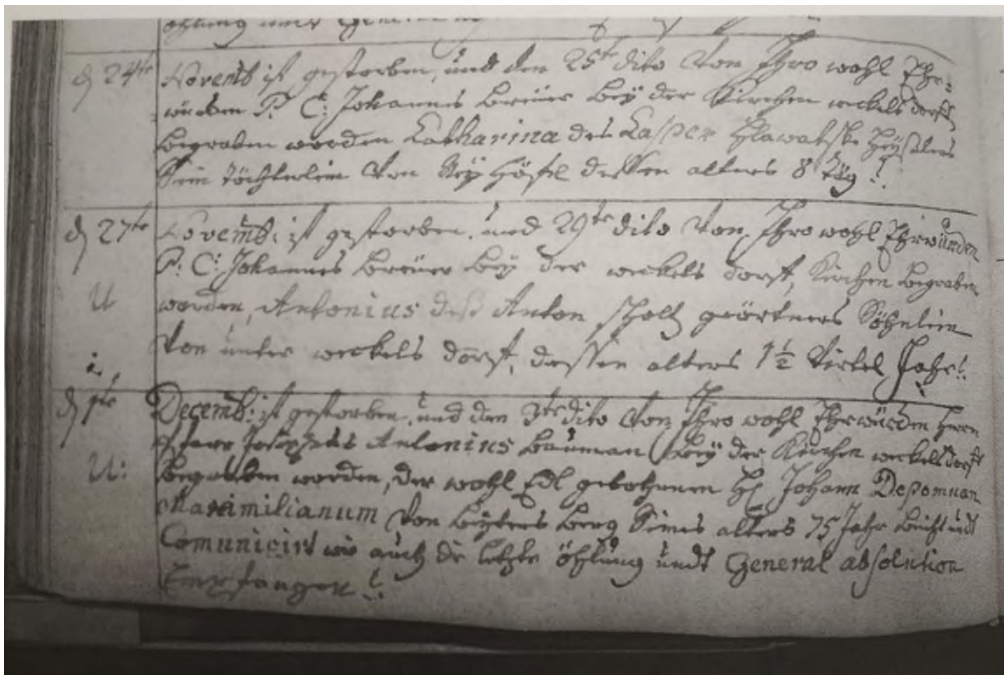 öhlung undt General
d 24te Novemb ist gestorben, und den 25te dito von Ihro wohl Ehr=
würden P. C: Johannes Breüer bey der Kirchen weckelsdorff
begraben worden Catharina des Casper Hlawatschke Heüßlers
Sein töchterlein von Ney Höffel dessen alters 8 täg:
d 27te Novemb: ist gestorben, und 29te dito von Ihro wohl Ehrwürden
P: C: Johannes Breüer bey der weckels dorff, Kirchen begraben
U worden, Antonius deß Anton Scholtz gärtners Söhnlein
von unter weckels dorff, dessen alters 1½ virtel Jahr:
d 1te Decemb: ist gestorben, und den 3te dito von Ihro wohl Ehrwürden Herrn
Pfarr Josephus Antonius Bauman bey der Kirchen weckelsdorff
U: begraben worden, der wohl Edl gebohrnen H: Johann Depomuan
Maximilianum von Berg Seines alters 75 Jahr beicht undt
Comunicirt wie auch die letzte öhlung undt General absolution
Empfangen: